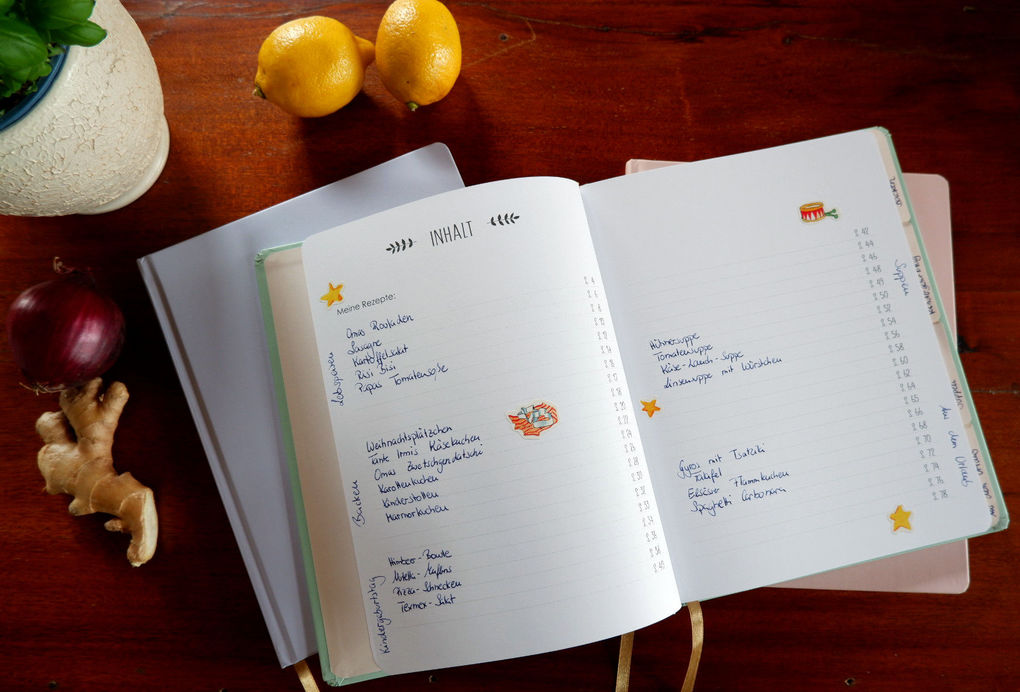 INHALT
Meine Rezepte:
Leibspeisen
Omas Rouladen
Lasagne
Kartoffelsalat
Risi Bisi
Papas Tomatensoße
Backen
Weihnachtsplätzchen
Tante Irmis Käsekuchen
Omas Zwetschgendatschi
Karottenkuchen
Kinderstollen
Marmorkuchen
Kindergeburtstag
Himbeer-Bowle
Muffins
Pizza-Schnecken
Salat
S. 4
S. 6
S. 8
S. 10
S. 12
S. 14
S. 16
S. 17
S. 18
S. 20
S. 22
S. 24
S. 26
S. 28
S. 30
S. 32
S. 33
S. 34
S. 36
S. 38
S. 40
Suppen
Hühnersuppe
Tomatensuppe
Käse-Lauch-Suppe
Linsensuppe mit Würstchen
Aus dem Urlaub
Gyros mit Tsatziki
Falafel
Elsässer Flammkuchen
Spaghetti Carbonara
S. 42
S. 44
S. 46
S. 48
S. 49
S. 50
S. 52
S. 54
S. 56
S. 58
S. 60
S. 62
S. 64
S. 65
S. 66
S. 68
S. 70
S. 72
S. 74
S. 76
S. 78
Backen
Suppen